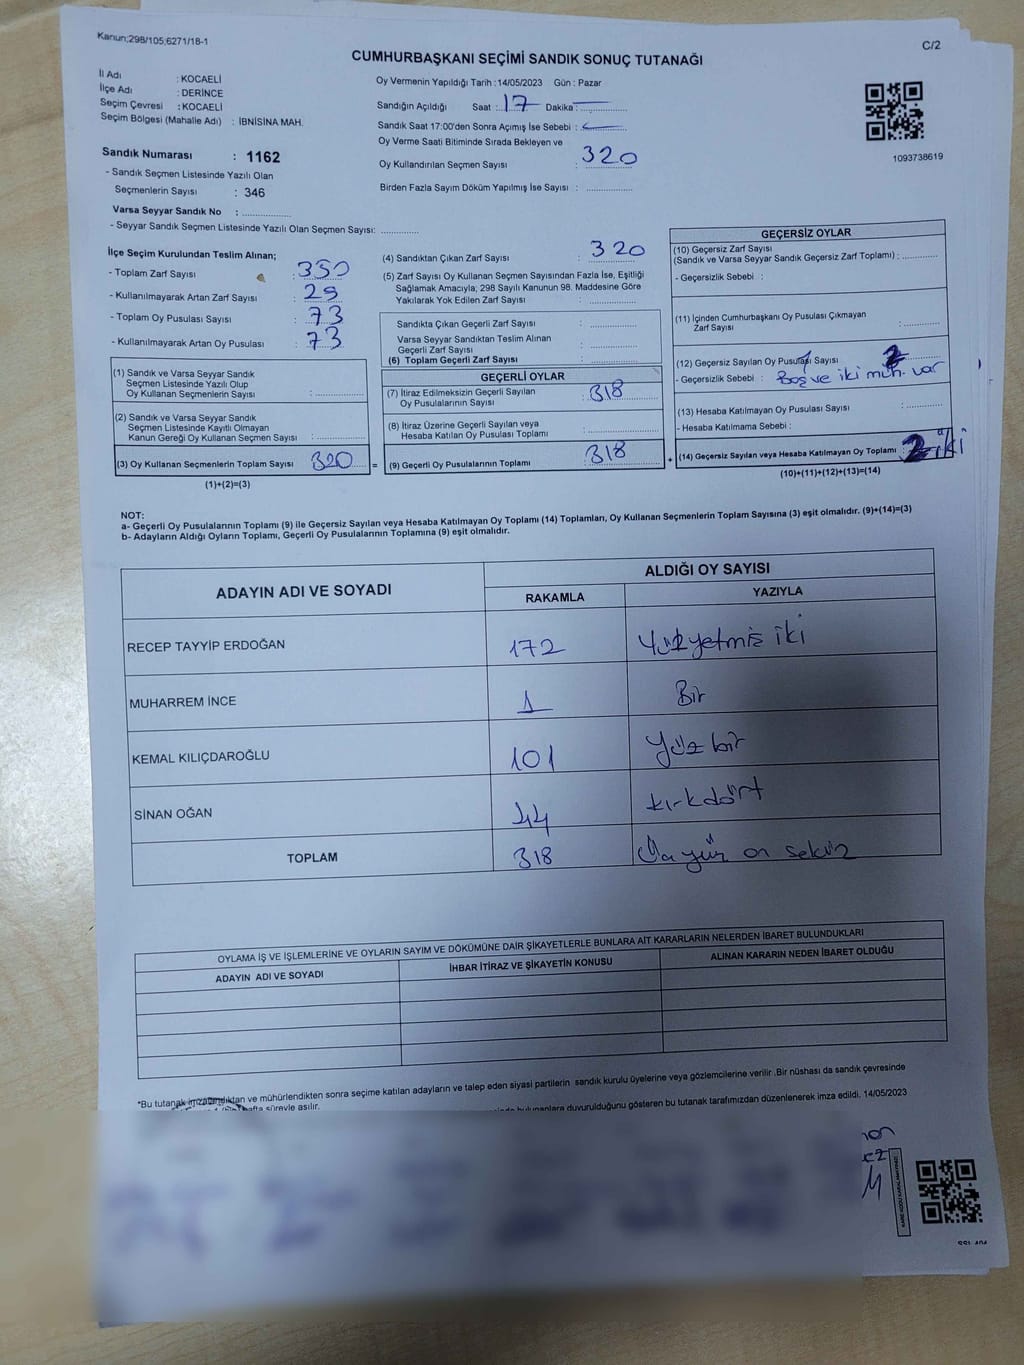 Kanun;298/105;6271/18-1
C/2
CUMHURBAŞKANI SEÇİMİ SANDIK SONUÇ TUTANAĞI
İl Adı : KOCAELİ
İlçe Adı : DERİNCE
Seçim Çevresi : KOCAELİ
Seçim Bölgesi (Mahalle Adı) : İBNİSİNA MAH.
Sandık Numarası : 1162
- Sandık Seçmen Listesinde Yazılı Olan
Seçmenlerin Sayısı : 346
Varsa Seyyar Sandık No :
- Seyyar Sandık Seçmen Listesinde Yazılı Olan Seçmen Sayısı:
Oy Vermenin Yapıldığı Tarih : 14/05/2023 Gün : Pazar
Sandığın Açıldığı Saat : 17 Dakika :
Sandık Saat 17:00'den Sonra Açımış İse Sebebi :
Oy Verme Saati Bitiminde Sırada Bekleyen ve
Oy Kullandırılan Seçmen Sayısı : 320
Birden Fazla Sayım Döküm Yapılmış İse Sayısı :
1093738619
İlçe Seçim Kurulundan Teslim Alınan;
- Toplam Zarf Sayısı : 350
- Kullanılmayarak Artan Zarf Sayısı : 29
- Toplam Oy Pusulası Sayısı : 73
- Kullanılmayarak Artan Oy Pusulası : 73
(1) Sandık ve Varsa Seyyar Sandık
Seçmen Listesinde Yazılı Olup
Oy Kullanan Seçmenlerin Sayısı :
(2) Sandık ve Varsa Seyyar Sandık
Seçmen Listesinde Kayıtlı Olmayan
Kanun Gereği Oy Kullanan Seçmen Sayısı :
(3) Oy Kullanan Seçmenlerin Toplam Sayısı : 320
(1)+(2)=(3)
(4) Sandıktan Çıkan Zarf Sayısı : 320
(5) Zarf Sayısı Oy Kullanan Seçmen Sayısından Fazla İse, Eşitliği
Sağlamak Amacıyla; 298 Sayılı Kanunun 98. Maddesine Göre
Yakılarak Yok Edilen Zarf Sayısı :
Sandıkta Çıkan Geçerli Zarf Sayısı :
Varsa Seyyar Sandıktan Teslim Alınan
Geçerli Zarf Sayısı :
(6) Toplam Geçerli Zarf Sayısı :
GEÇERLİ OYLAR
(7) İtiraz Edilmeksizin Geçerli Sayılan
Oy Pusulalarının Sayısı : 318
(8) İtiraz Üzerine Geçerli Sayılan veya
Hesaba Katılan Oy Pusulası Toplamı :
(9) Geçerli Oy Pusulalarının Toplamı : 318
GEÇERSİZ OYLAR
(10) Geçersiz Zarf Sayısı
(Sandık ve Varsa Seyyar Sandık Geçersiz Zarf Toplamı) :
- Geçersizlik Sebebi :
(11) İçinden Cumhurbaşkanı Oy Pusulası Çıkmayan
Zarf Sayısı :
(12) Geçersiz Sayılan Oy Pusulası Sayısı : 2
- Geçersizlik Sebebi : Boş ve iki müh. var
(13) Hesaba Katılmayan Oy Pusulası Sayısı :
- Hesaba Katılmama Sebebi :
(14) Geçersiz Sayılan veya Hesaba Katılmayan Oy Toplamı : 2 iki
(10)+(11)+(12)+(13)=(14)
NOT:
a- Geçerli Oy Pusulalarının Toplamı (9) ile Geçersiz Sayılan veya Hesaba Katılmayan Oy Toplamı (14) Toplamları, Oy Kullanan Seçmenlerin Toplam Sayısına (3) eşit olmalıdır. (9)+(14)=(3)
b- Adayların Aldığı Oyların Toplamı, Geçerli Oy Pusulalarının Toplamına (9) eşit olmalıdır.
ADAYIN ADI VE SOYADI ALDIĞI OY SAYISI
RAKAMLA YAZIYLA
RECEP TAYYİP ERDOĞAN 172 Yüzyetmiş iki
MUHARREM İNCE 1 Bir
KEMAL KILIÇDAROĞLU 101 Yüz bir
SİNAN OĞAN 44 kırkdört
TOPLAM 318 Üç yüz on sekiz
OYLAMA İŞ VE İŞLEMLERİNE VE OYLARIN SAYIM VE DÖKÜMÜNE DAİR ŞİKAYETLERLE BUNLARA AİT KARARLARIN NELERDEN İBARET BULUNDUKLARI
ADAYIN ADI VE SOYADI İHBAR İTİRAZ VE ŞİKAYETİN KONUSU ALINAN KARARIN NEDEN İBARET OLDUĞU
*Bu tutanak imzalandıktan ve mühürlendikten sonra seçime katılan adayların ve talep eden siyasi partilerin sandık kurulu üyelerine veya gözlemcilerine verilir .Bir nüshası da sandık çevresinde
hafta süreyle asılır. bulunanlara duyurulduğunu gösteren bu tutanak tarafımızdan düzenlenerek imza edildi. 14/05/2023